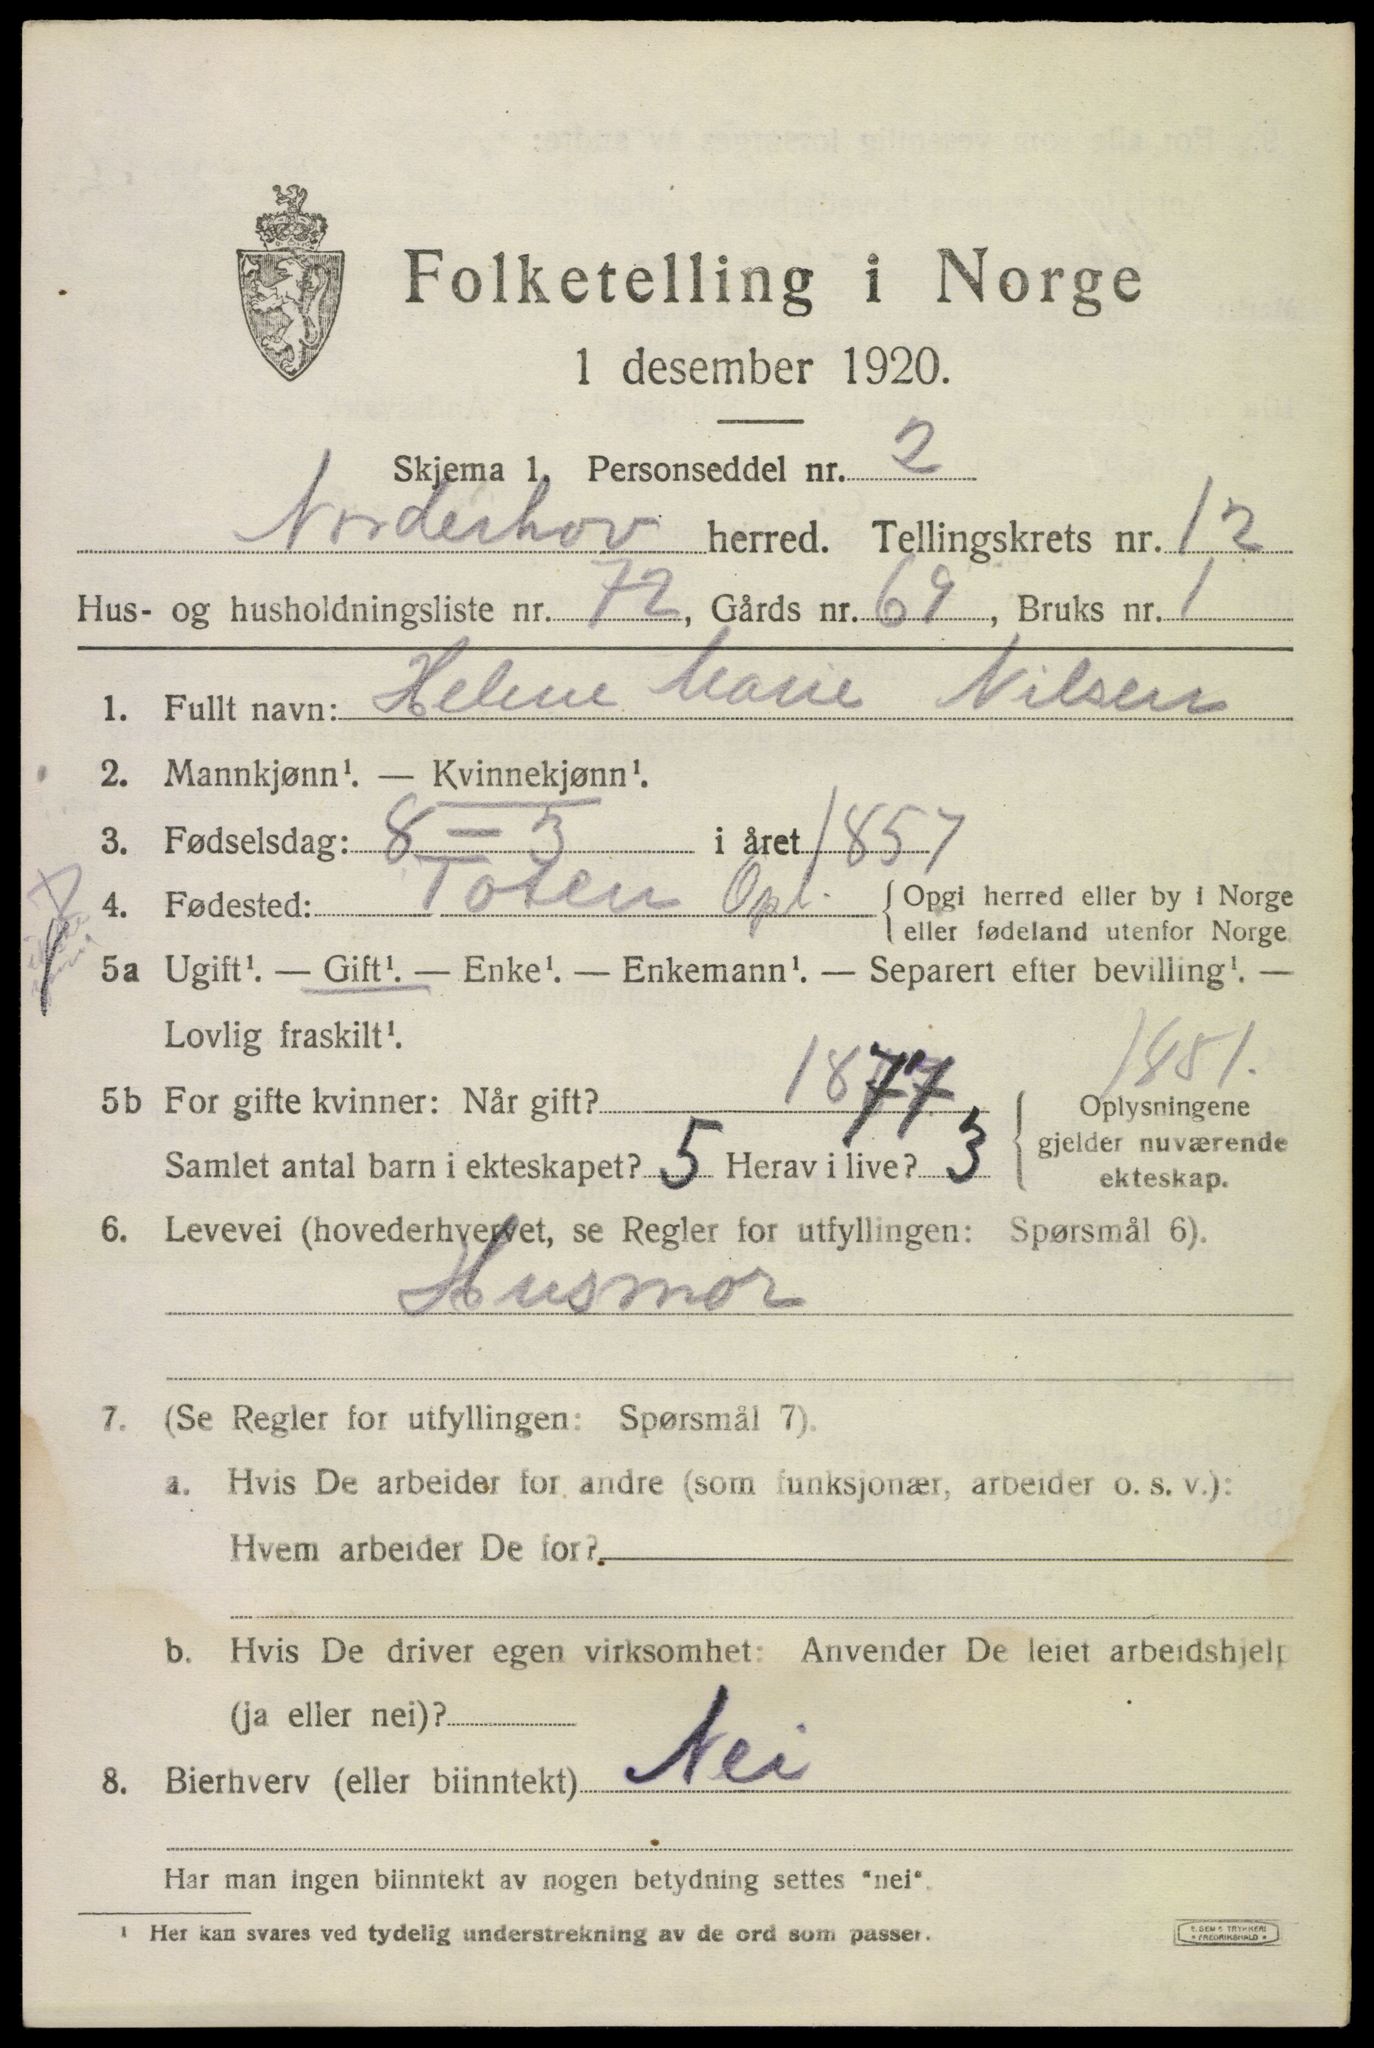 Folketelling i Norge
1 desember 1920.
Skjema 1. Personseddel nr. 2
Norderhov herred. Tellingskrets nr. 12
Hus- og husholdningsliste nr. 72, Gårds nr. 69, Bruks nr. 1
1. Fullt navn: Helene Marie Nilsen
2. Mannkjønn¹. — Kvinnekjønn¹.
3. Fødselsdag: 8 — 3 i året 1857
4. Fødested: Toten Opl. { Opgi herred eller by i Norge
eller fødeland utenfor Norge.
5a Ugift¹. — Gift¹. — Enke¹. — Enkemann¹. — Separert efter bevilling¹. —
Lovlig fraskilt¹.
1851.
5b For gifte kvinner: Når gift? 1877 { Oplysningene
gjelder nuværende
Samlet antal barn i ekteskapet? 5 Herav i live? 3 ekteskap.
6. Levevei (hovederhvervet, se Regler for utfyllingen: Spørsmål 6).
Husmor
7. (Se Regler for utfyllingen: Spørsmål 7).
a. Hvis De arbeider for andre (som funksjonær, arbeider o. s. v.):
Hvem arbeider De for?
b. Hvis De driver egen virksomhet: Anvender De leiet arbeidshjelp
(ja eller nei)?
8. Bierhverv (eller biinntekt) Nei
Har man ingen biinntekt av nogen betydning settes "nei".
¹ Her kan svares ved tydelig understrekning av de ord som passer.
E. SEM'S TRYKKERI
* FREDRIKSHALD *